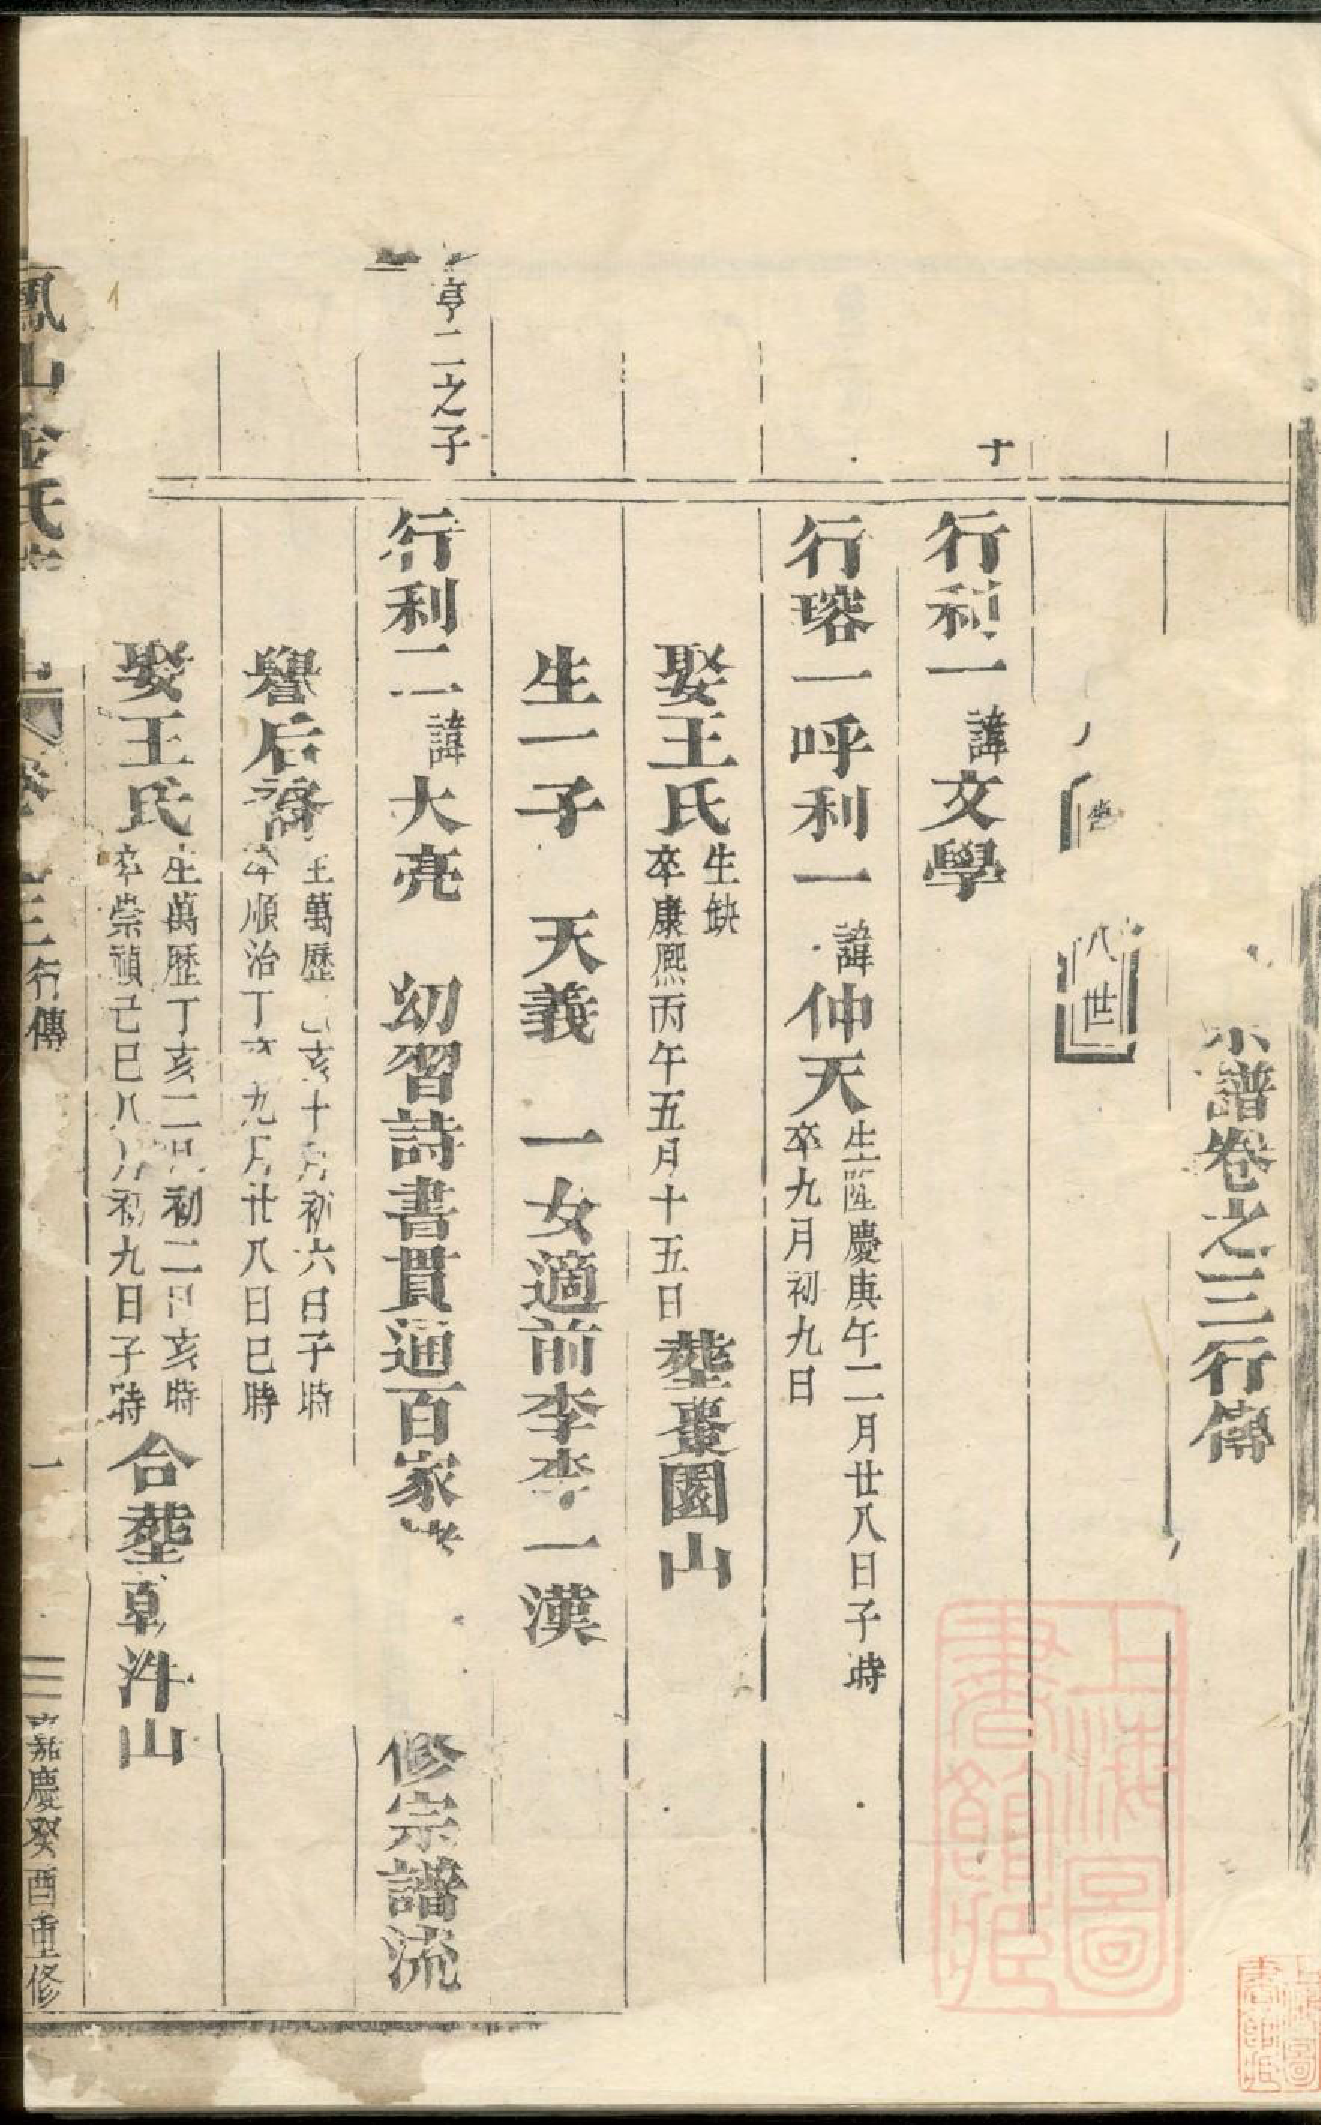 宗譜卷之三行傳
八世
十
行禎一諱文學
行瑢一呼利一諱仲天生隆慶庚午二月廿八日子時
卒九月初九日
娶王氏生缺
卒康熙丙午五月十五日葬棗園山
生一子 天義 一女適前李李一漢
亨二之子
行利二諱大亮 幼習詩書貫通百家 修宗譜流
譽后裔生萬歷亥十月初六日子時
卒順治丁亥九月廿八日巳時
娶王氏生萬歷丁亥二月初二日亥時
卒崇禎己巳八月初九日子時合葬草汼山
鳳山金氏
卷之三行傳
一
嘉慶癸酉重修
上海圖書館藏
上海圖書館藏